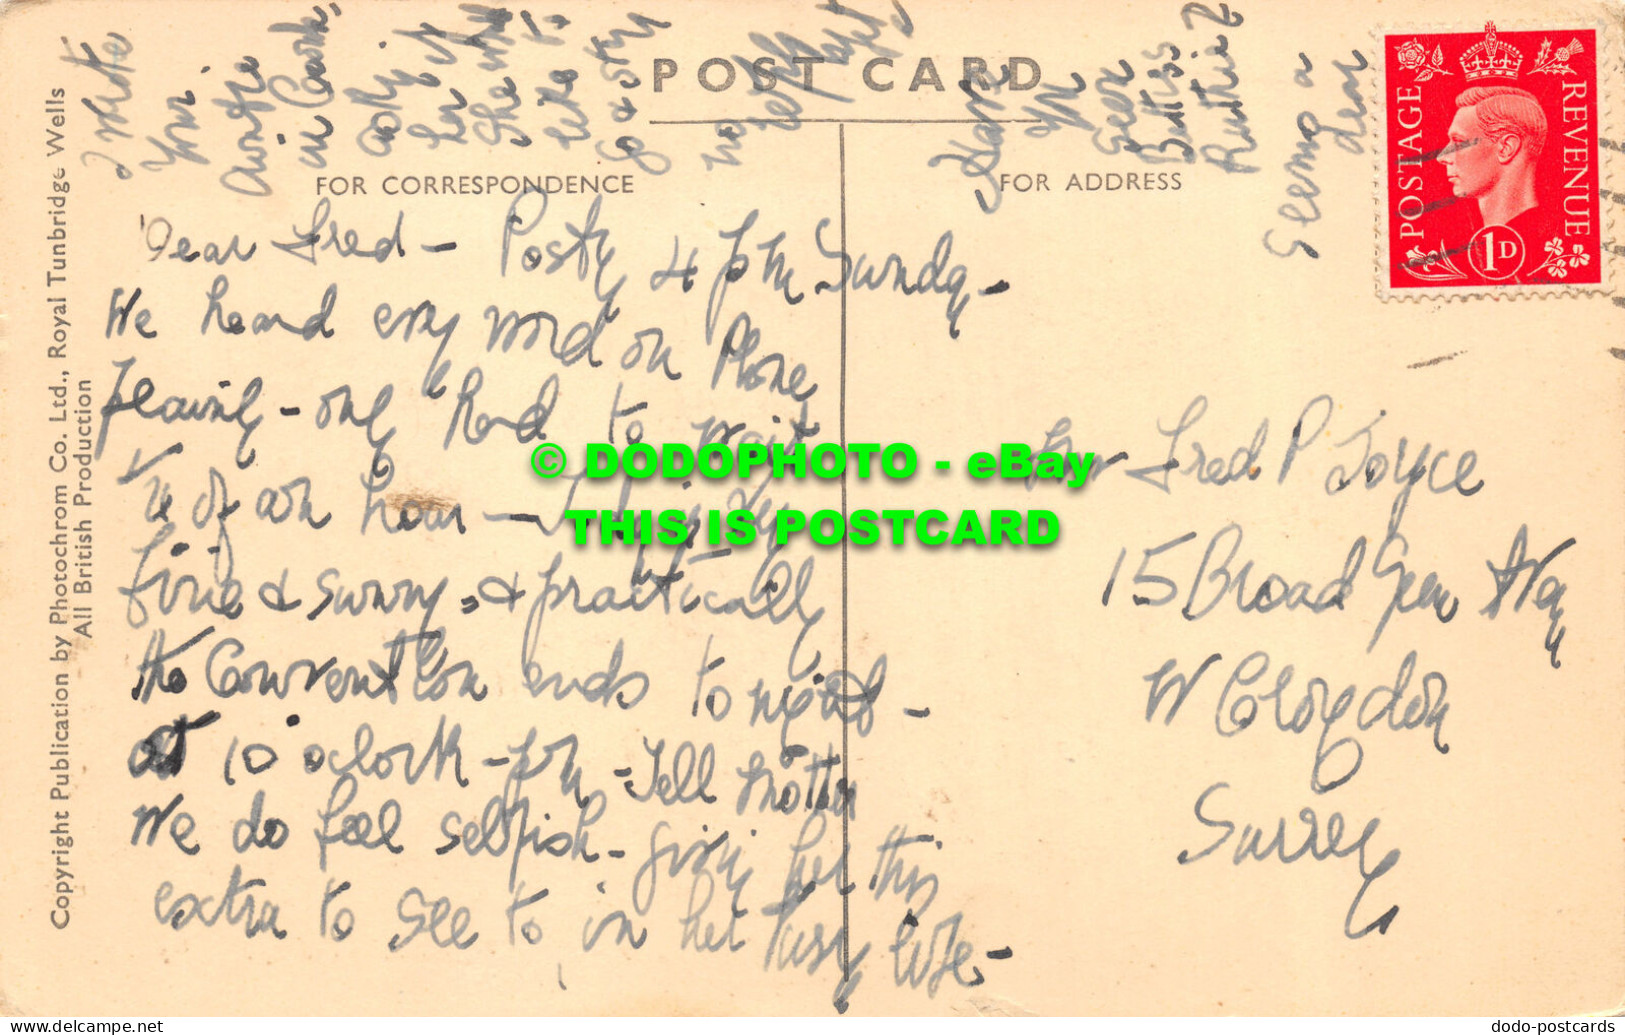 POST CARD
FOR CORRESPONDENCE
FOR ADDRESS
I wrote
Your
Auntie
in Cornk.
ask if
her
She would
like to
Go & stay
no reply
Have
you
seen
Bettiss
Ruthie?
Seems a
dear
POSTAGE
REVENUE
1D
Dear Fred – Posty 4 pm Sunday –
We heard every word on Phone
plainly – only had to wait
¼ of an hour – Today is
fine & sunny, & practically
the Convention ends to night –
at 10 o'clock – pm – Tell Mother
We do feel selfish – giving her this
extra to see to in her busy life –
Fred P Joyce
15 Broad Green Aven
W Croydon
Surrey
Copyright Publication by Photochrom Co. Ltd., Royal Tunbridge Wells
All British Production
© DODOPHOTO - eBay
THIS IS POSTCARD
www.delcampe.net
dodo-postcards